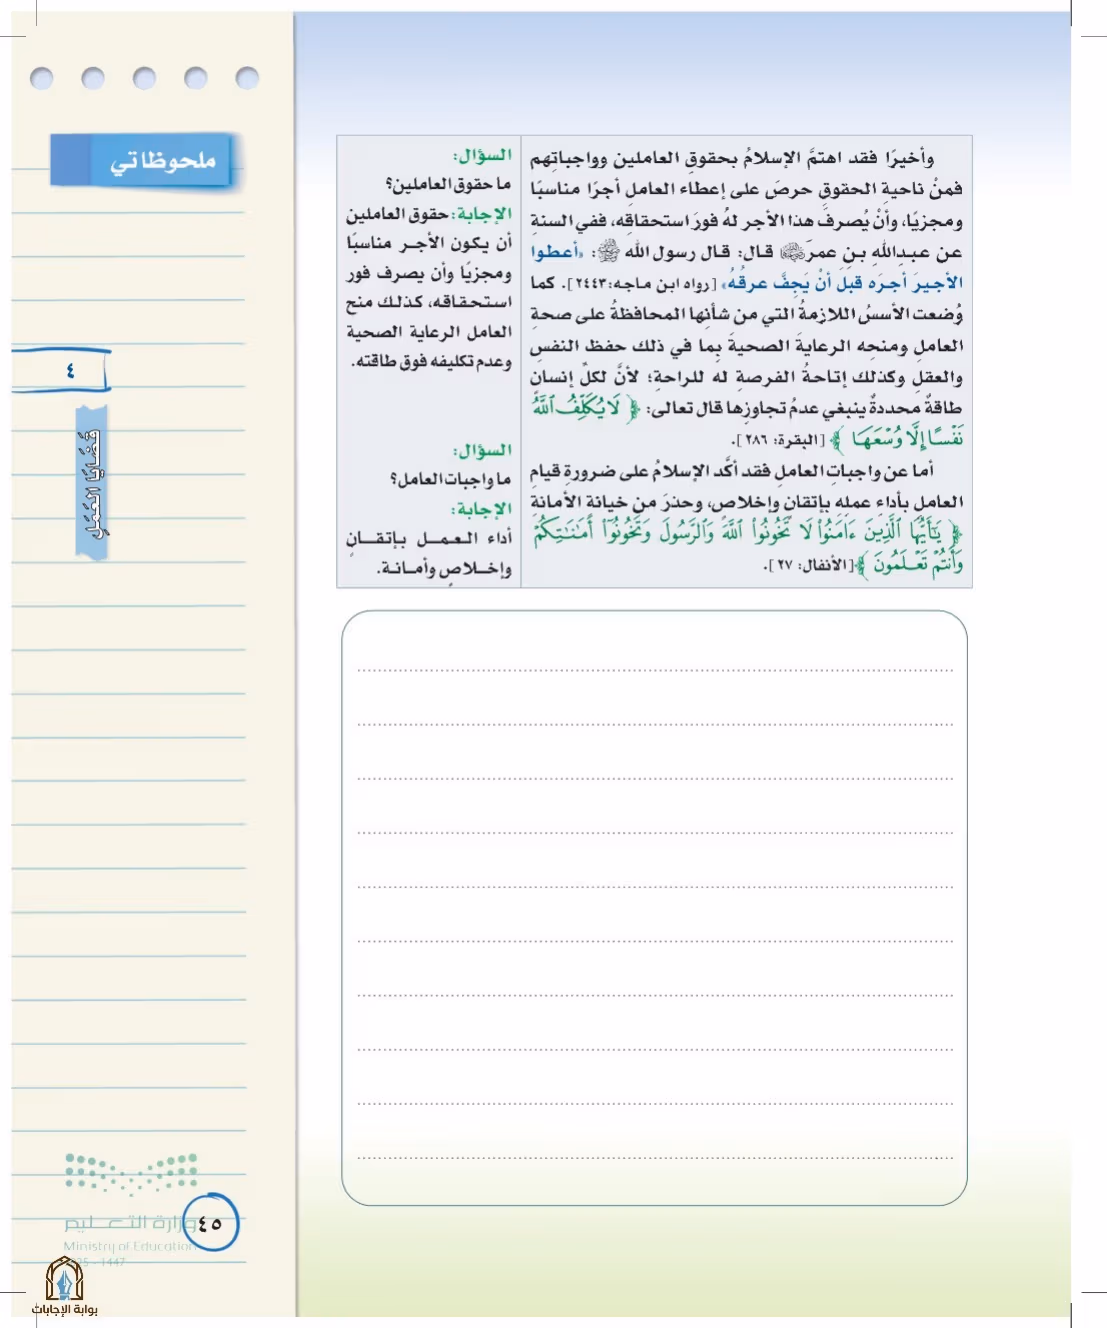 وأخيرًا فقد اهتمَّ الإسلامُ بحقوقِ العاملين وواجباتِهم
فمنْ ناحيةِ الحقوقِ حرصَ على إعطاء العاملِ أجرًا مناسبًا
ومجزيًا، وأنْ يُصرفَ هذا الأجر لهُ فورَ استحقاقِه، ففي السنةِ
عن عبداللهِ بنِ عمرَ ﵁ قال: قال رسول الله ﷺ: «أعطوا
الأجيرَ أجرَه قبلَ أنْ يَجِفَّ عرقُهُ» [رواه ابن ماجه:٢٤٤٣]. كما
وُضعت الأسسُ اللازمةُ التي من شأنِها المحافظةُ على صحةِ
العاملِ ومنحِه الرعايةَ الصحيةَ بما في ذلك حفظ النفسِ
والعقلِ وكذلك إتاحةُ الفرصةِ له للراحة؛ لأنَّ لكلِّ إنسانٍ
طاقةً محددةً ينبغي عدمُ تجاوزِها قال تعالى: ﴿ لَا يُكَلِّفُ ٱللَّهُ
نَفْسًا إِلَّا وُسْعَهَا ﴾ [البقرة: ٢٨٦].
أما عن واجباتِ العاملِ فقد أكَّد الإسلامُ على ضرورةِ قيامِ
العاملِ بأداءِ عملِهِ بإتقانٍ وإخلاصٍ، وحذرَ من خيانةِ الأمانةِ
﴿ يَٰٓأَيُّهَا ٱلَّذِينَ ءَامَنُوا۟ لَا تَخُونُوا۟ ٱللَّهَ وَٱلرَّسُولَ وَتَخُونُوٓا۟ أَمَٰنَٰتِكُمْ
وَأَنتُمْ تَعْلَمُونَ ﴾[الأنفال: ٢٧].
السؤال:
ما حقوق العاملين؟
الإجابة: حقوق العاملين
أن يكون الأجر مناسبًا
ومجزيًا وأن يصرف فور
استحقاقه، كذلك منح
العامل الرعاية الصحية
وعدم تكليفه فوق طاقته.
السؤال:
ما واجبات العامل؟
الإجابة:
أداء العمل بإتقانٍ
وإخلاصٍ وأمانة.
ملحوظاتي
٤
قَضَايَا العَمَلِ
وزارة التعليم
Ministry of Education
2025 - 1447
٤٥
بوابة الإجابات